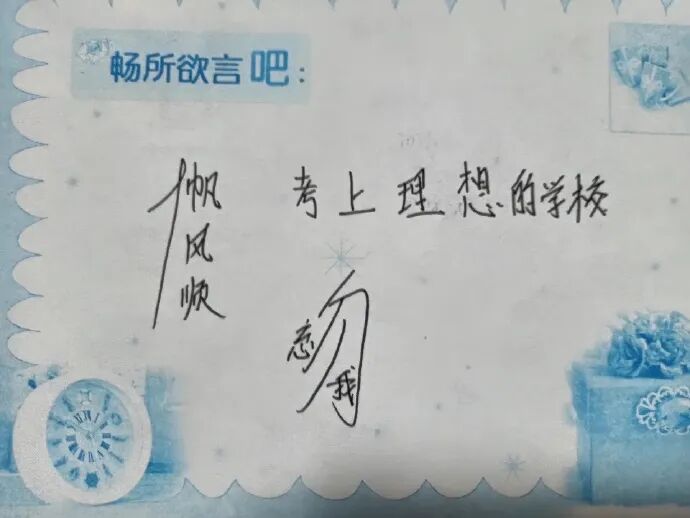 畅所欲言吧：
一帆风顺
考上理想的学校
勿忘我